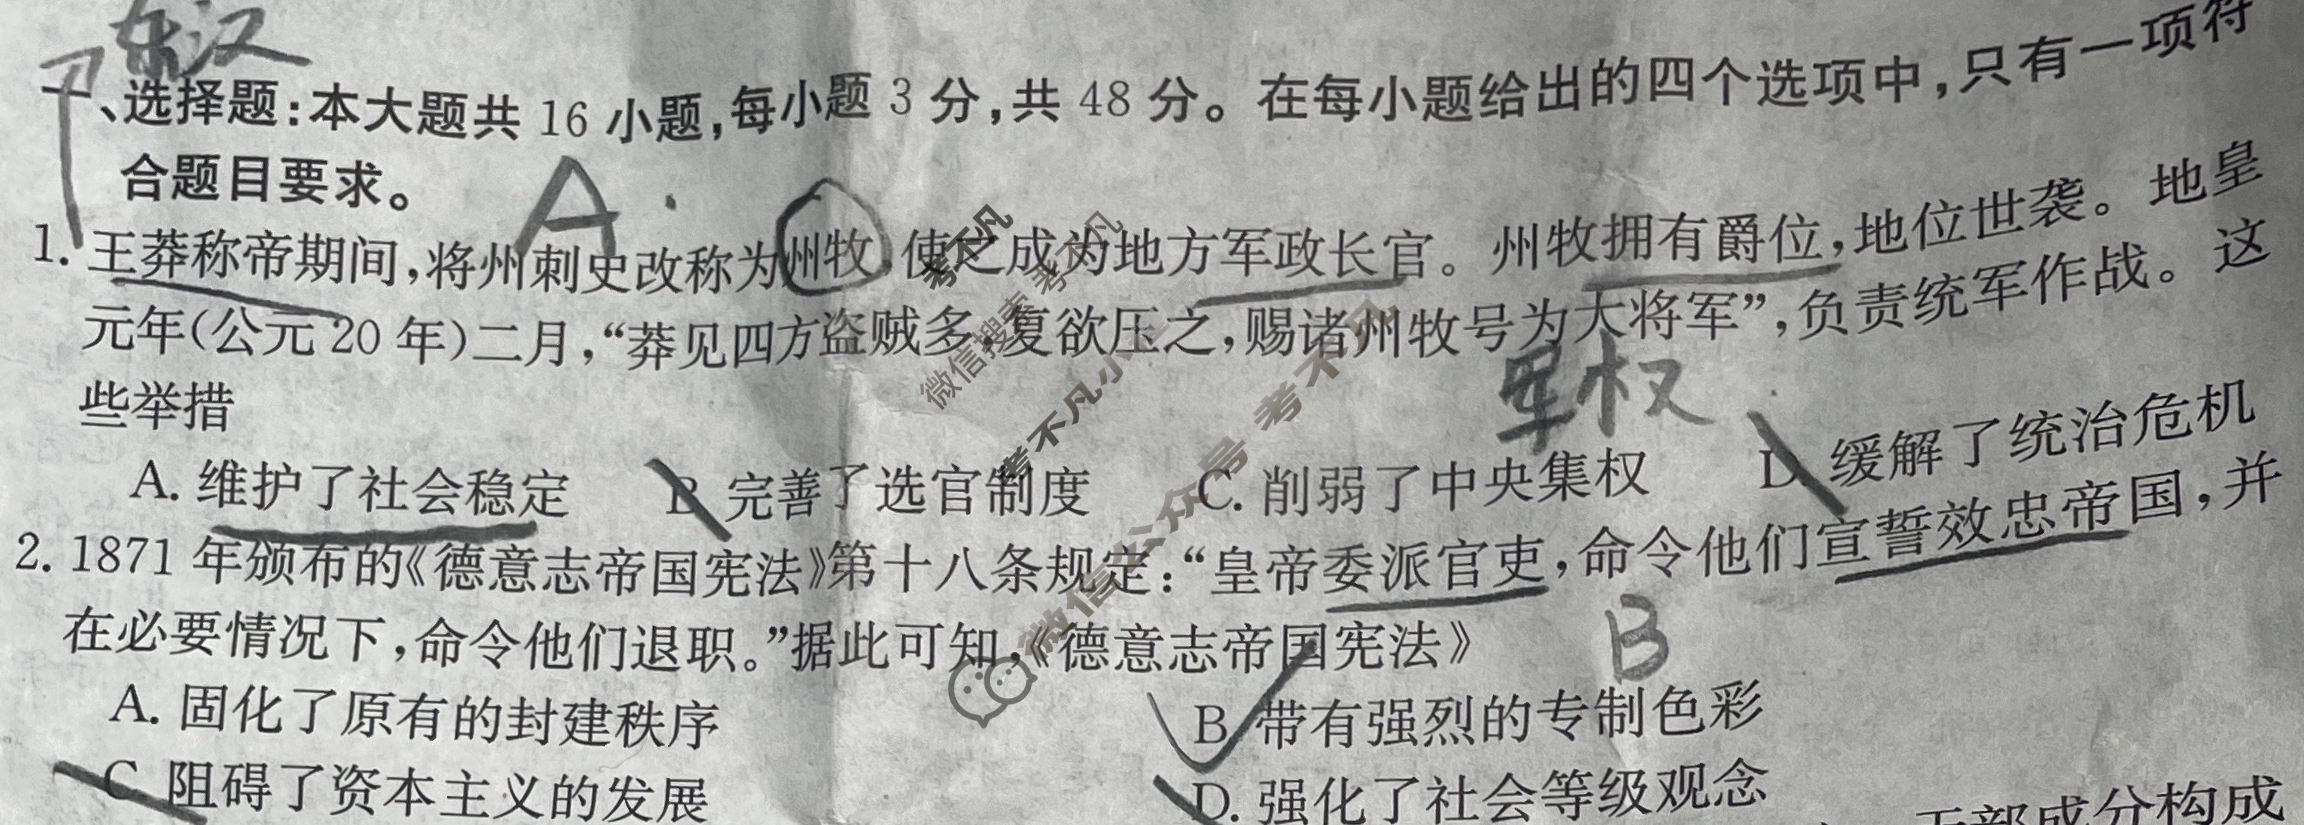 东汉
一、选择题:本大题共 16 小题,每小题 3 分,共 48 分。在每小题给出的四个选项中,只有一项符
合题目要求。
A
1. 王莽称帝期间,将州刺史改称为州牧,使之成为地方军政长官。州牧拥有爵位,地位世袭。地皇
元年(公元 20 年)二月,“莽见四方盗贼多,复欲压之,赐诸州牧号为大将军”,负责统军作战。这
些举措
军权
A. 维护了社会稳定 B 完善了选官制度 C. 削弱了中央集权 D. 缓解了统治危机
2. 1871 年颁布的《德意志帝国宪法》第十八条规定:“皇帝委派官吏,命令他们宣誓效忠帝国,并
在必要情况下,命令他们退职。”据此可知,《德意志帝国宪法》
B
A. 固化了原有的封建秩序 B 带有强烈的专制色彩
C 阻碍了资本主义的发展 D. 强化了社会等级观念
干部成分构成
考不凡
微信搜索 考不凡
考不凡小
微信公众号 考不凡